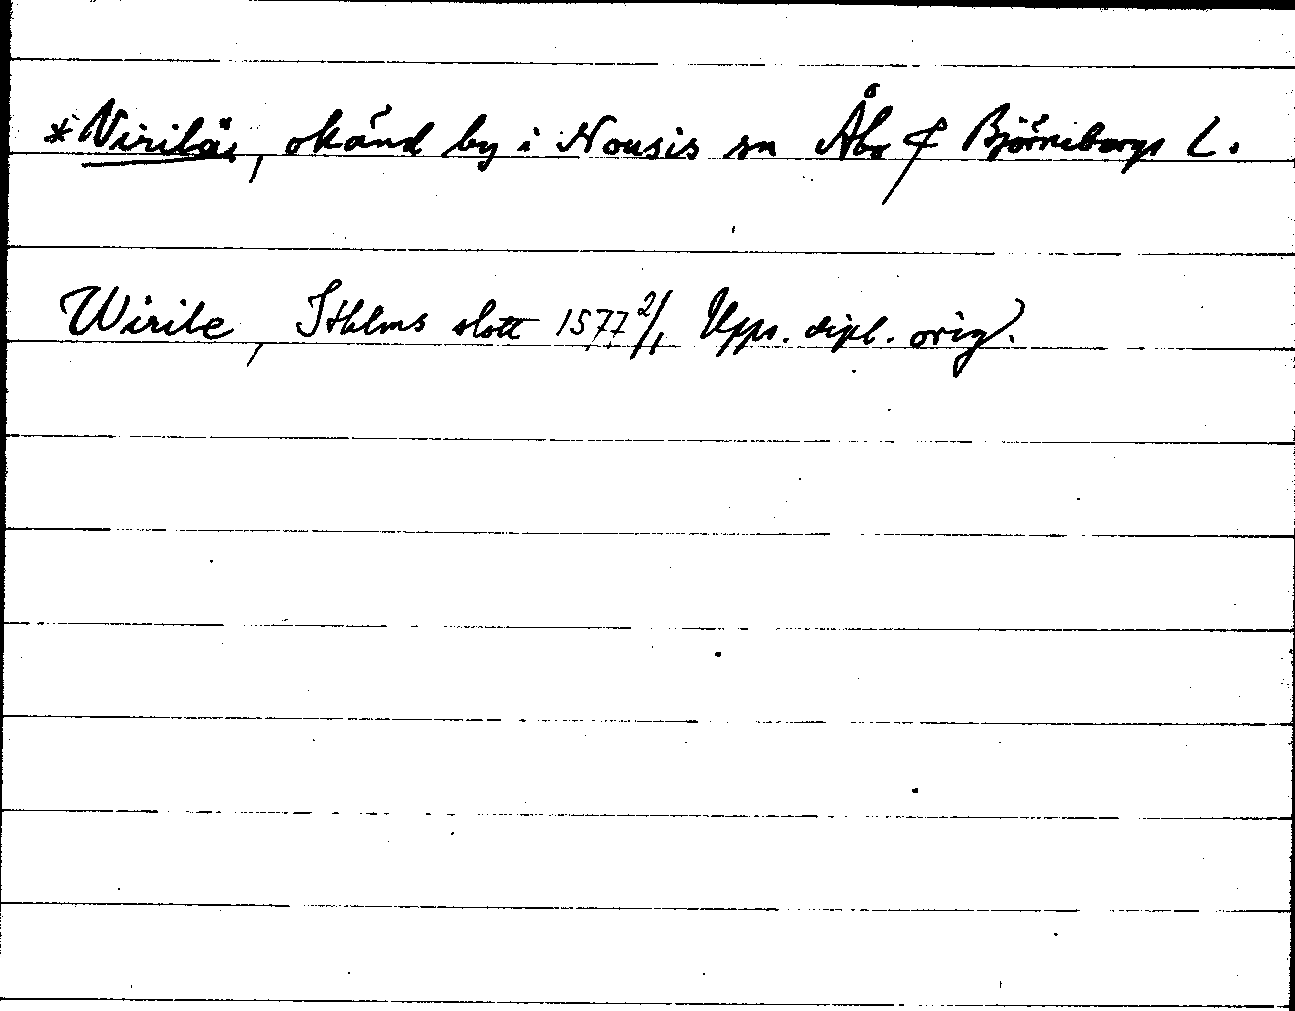 *Virilä, okänd by i Nousis sn Åbo & Björneborgs L.
Wirile, Sthlms slott 1577 2/1 Upps. dipl. orig.